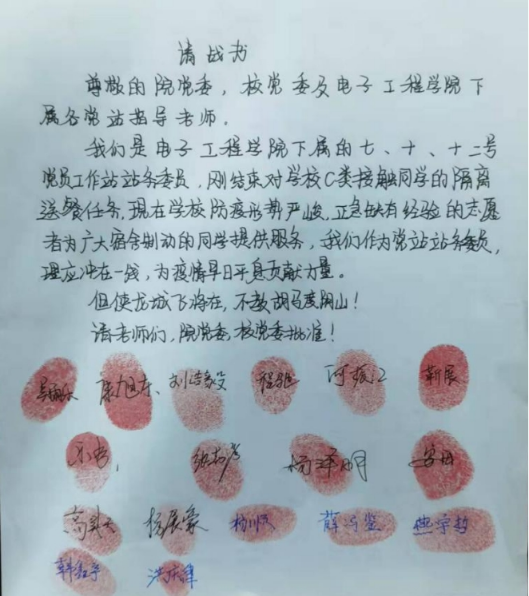 请战书
尊敬的院党委，校党委及电子工程学院下
属各党站指导老师。
我们是电子工程学院下属的七、十、十二号
党员工作站站务委员，刚结束对学校C类接触同学的隔离
送餐任务，现在学校防疫形势严峻，正急缺有经验的志愿
者为广大宿舍制动的同学提供服务，我们作为党站站务委员，
理应冲在一线，为疫情早日平息贡献力量。
但使龙城飞将在，不教胡马度阴山！
请老师们，院党委，校党委批准！
康旭东、程艳 靳展
杨泽明
杨辰豪 杨川 薛 燕宇